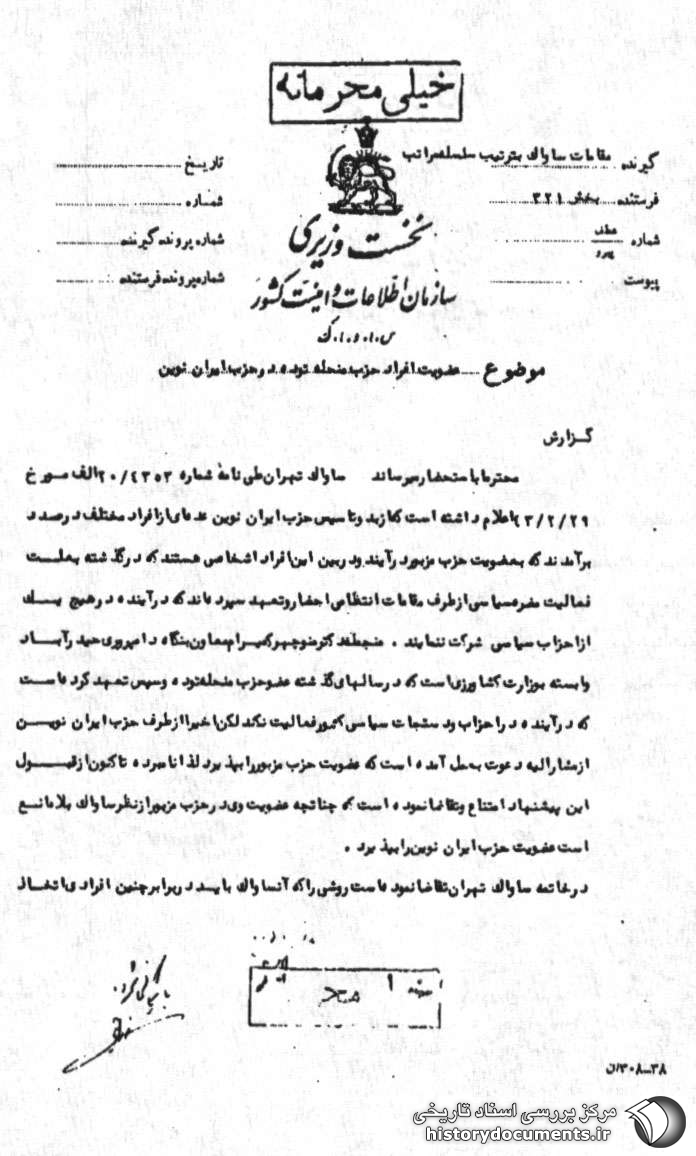 خیلی محرمانه
گیرنده مقامات ساواك بترتیب سلسله مراتب
تاریخ
فرستنده بخش ۳۲۱
شماره
شماره
عطف
پیرو
شماره پرونده گیرنده
پیوست
شماره پرونده فرستنده
نخست وزیری
سازمان اطلاعات و امنیت کشور
س.ا.و.ا.ك
موضوع عضویت افراد حزب منحله توده در حزب ایران نوین
گزارش
محترما باستحضار میرساند ساواك تهران طی نامه شماره ۲۰/۴۳۵۳ الف مورخ
۴۳/۲/۲۹ اعلام داشته است که از بدو تاسیس حزب ایران نوین عده ای از افراد مختلف در صدد
برآمدند که بعضویت حزب مزبور درآیند و در بین این افراد اشخاصی هستند که در گذشته بعلت
فعالیت مضره سیاسی از طرف مقامات انتظامی احضار و تعهد سپرده اند که در آینده در هیچ یك
از احزاب سیاسی شرکت ننمایند . منجمله دکتر منوچهر کمیرام معاون بنگاه دامپروری حیدرآباد
وابسته بوزارت کشاورزی است که در سالهای گذشته عضو حزب منحله توده و سپس تعهد کرده است
که در آینده در احزاب و دستجات سیاسی کشور فعالیت نکند لکن اخیرا از طرف حزب ایران نوین
از مشارالیه دعوت بعمل آمده است که عضویت حزب مزبور را بپذیرد لذا نامبرده تاکنون از قبول
این پیشنهاد امتناع و تقاضا نموده است که چنانچه عضویت وی در حزب مزبور از نظر ساواك بلامانع
است عضویت حزب ایران نوین را بپذیرد .
در خاتمه ساواك تهران تقاضا نموده است روشی را که آنساواك باید در برابر چنین افرادی اتخاذ
بایگانی شود.
۳۸-۳۰۸/ن
مرکز بررسی اسناد تاریخی
historydocuments.ir